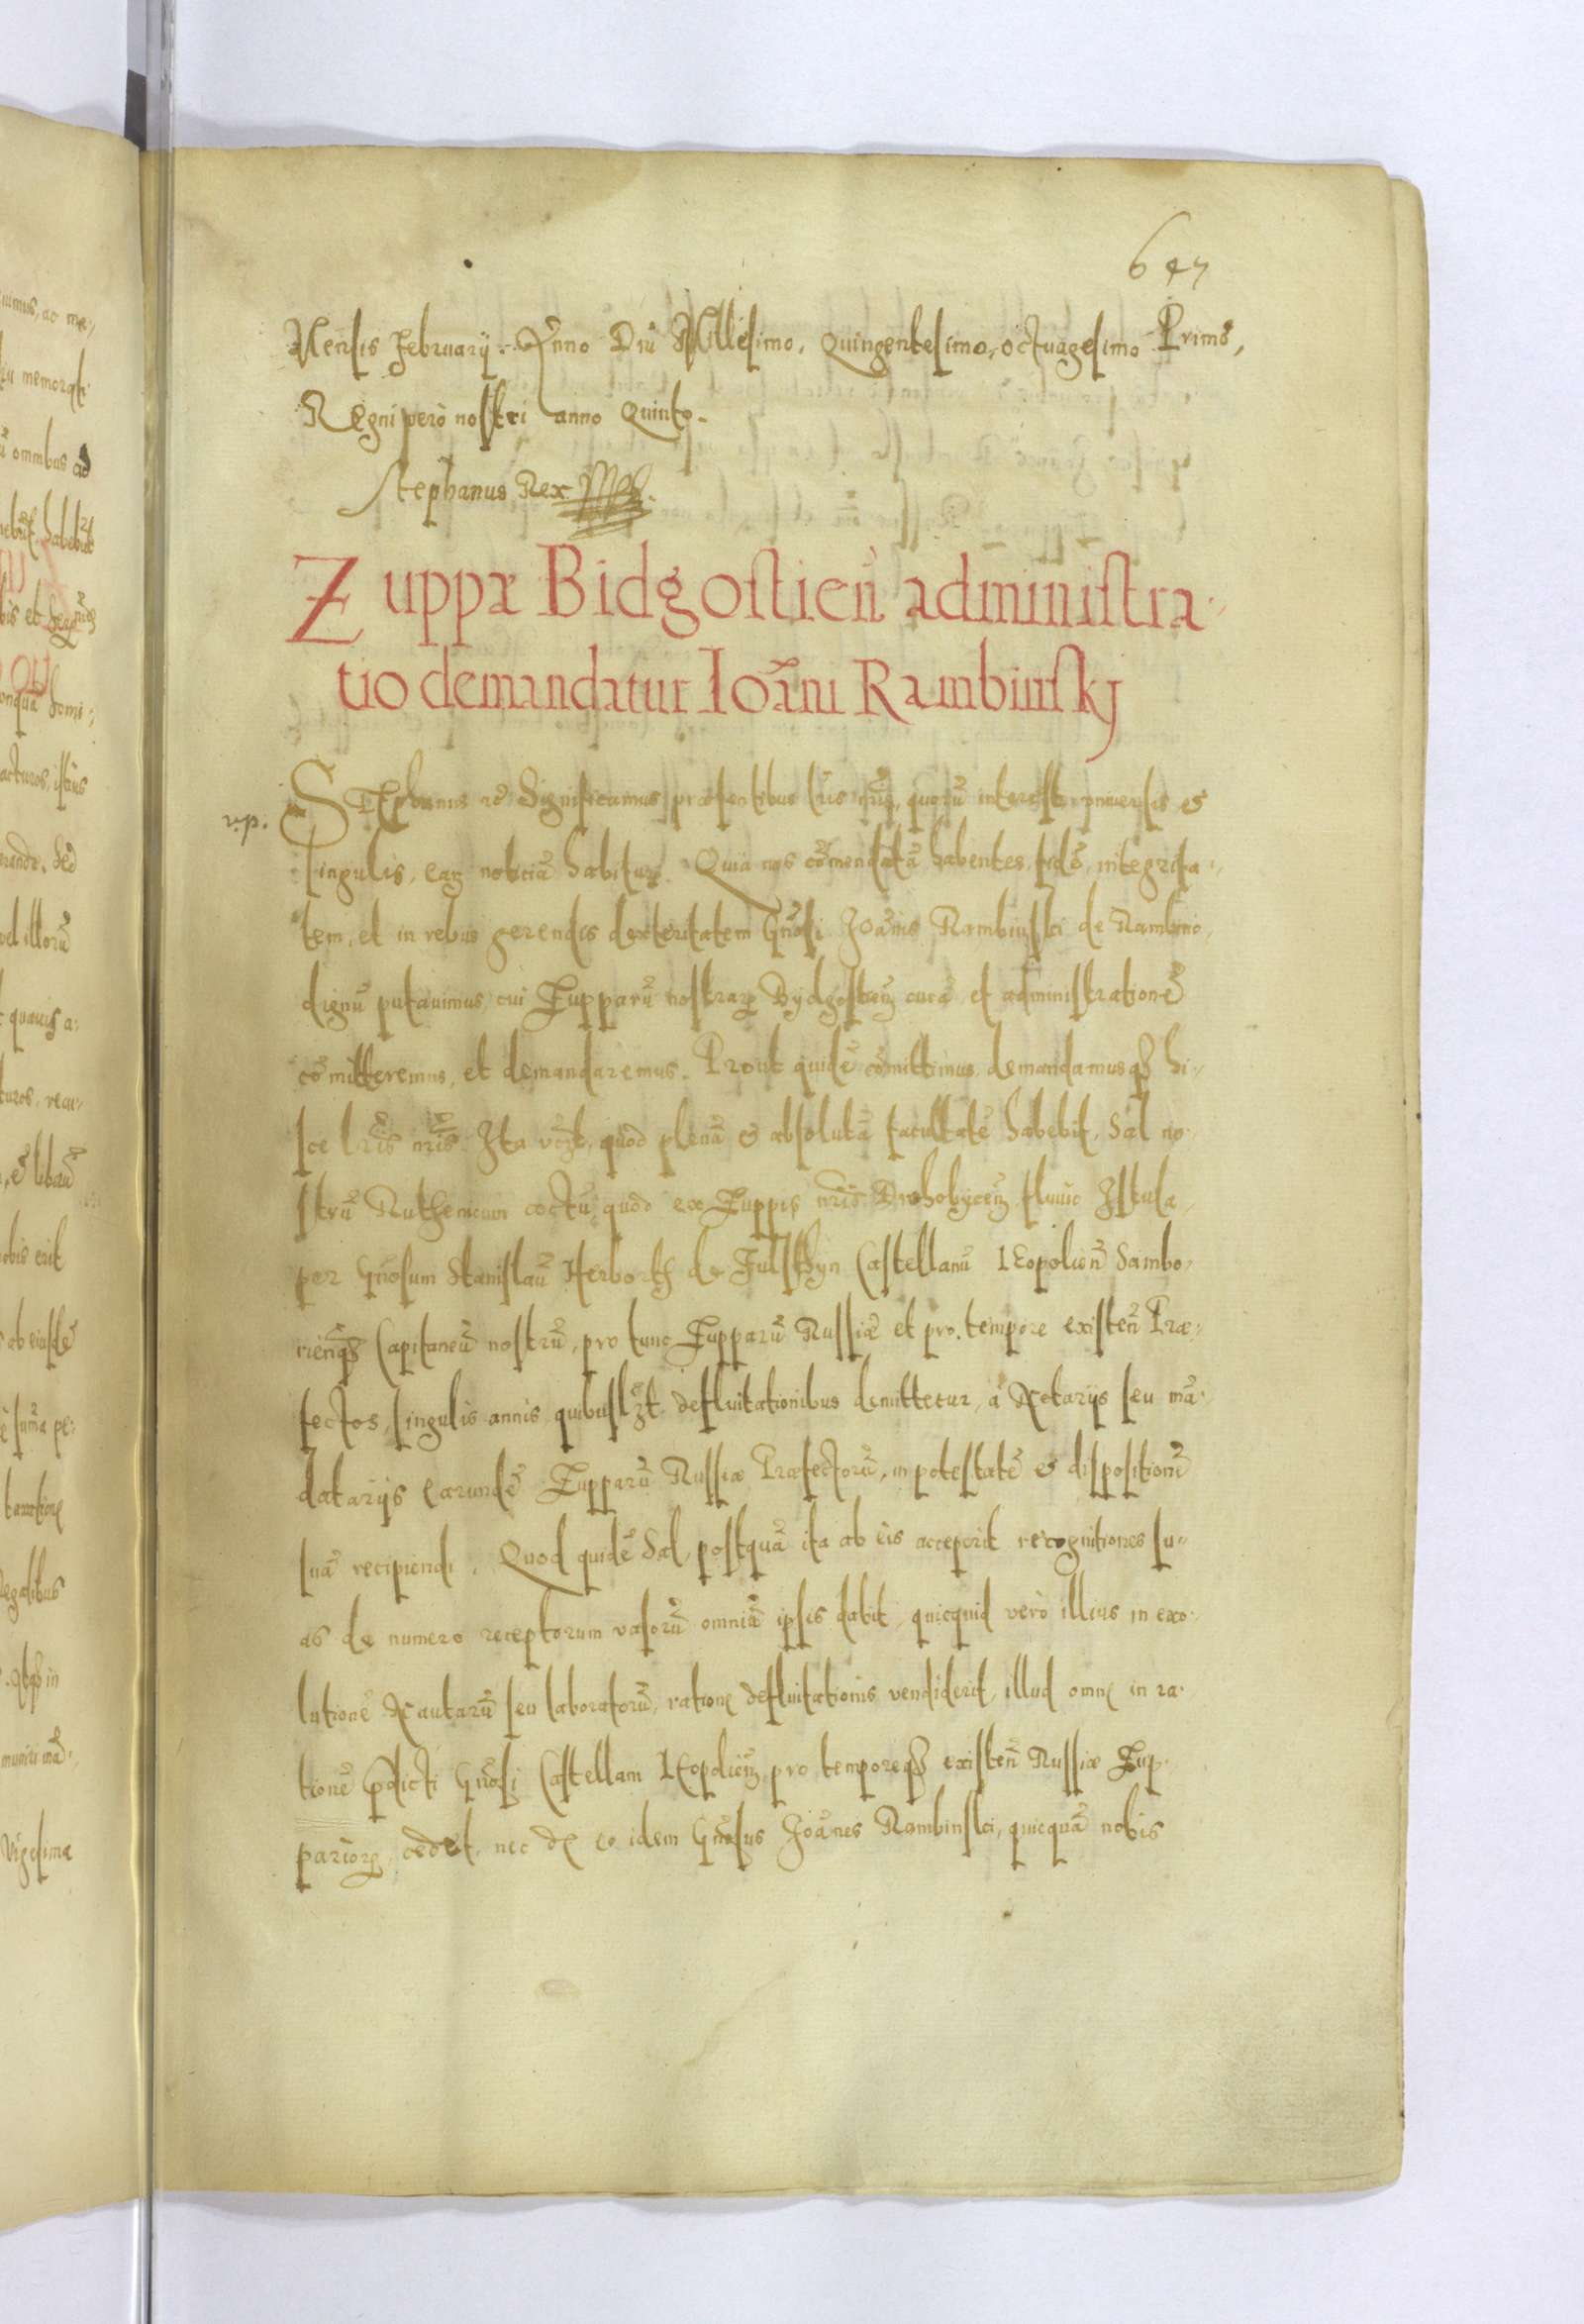 647
Mensis February. Anno Dñi Millesimo, Quingentesimo, octuagesimo Primo,
Regni vero nostri anno Quinto.
Stephanus Rex
Zuppæ Bidgostieñ administra-
tio demandatur Ioãni Rambinskj
r.p.
STEphanus rc̃ Significamus præsentibus lr̃is nr̃is, quorũ interest vniuersis et
singulis, eaȝ noticiã habituris. Quia nos cõmendatã habentes fidẽ, integrita-
tem, et in rebus gerendis dexteritatem Gñosi Joãnis Rambinski de Rambino,
dignũ putauimus cui Zupparũ nostrarꝝ Bydgosticñ curã et administrationẽ
cõmitteremus, et demandaremus. Prout quidẽ cõmittimus, demandamusqꝫ hi-
sce lr̃is nr̃is. Ita vt̃, quod plenã et absolutã facultatẽ habebit, Sal no-
strũ Ruthenicum coctũ, quod ex Zuppis nr̃is Drohobyceñ fluuio Istula,
per Gñosum Stanislaũ Herborth de Fulsthyn Castellanũ LEopolieñ Sambo-
rieñqꝫ Capitaneũ nostrũ, pro tunc Zupparũ Russiæ et pro tempore existeñ Præ-
fectos, singulis annis quibuslꝫt defluitationibus demittetur, à Actarijs seu mã-
datarijs earundẽ Zupparũ Russiæ Præfectorũ, in potestatẽ et dispositionẽ
suã recipiendi. Quod quidẽ Sal, postquã ita ab eis acceperit recognitiones su-
as de numero receptorum vasorũ omniũ ipsis dabit, quicquid verò illius in exo-
lutionẽ Nautarũ seu laboratorũ, ratione defluitationis vendiderit, illud omne in ra-
tionẽ p̃dicti Gñosi Castellani LEopolieñ, pro temporeqꝫ existeñ Russiæ Zup-
pariorꝝ cedet, nec de eo idem Gñosus Joãnes Rambinski, quicquã nobis